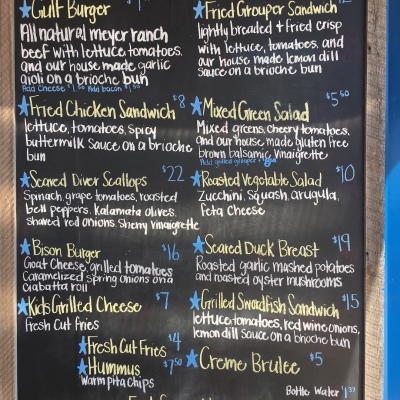 Gulf Burger
All natural meyer ranch
beef with lettuce, tomatoes,
and our house made garlic
aioli on a brioche bun
Add Cheese $1.00 Add bacon $1.50
Fried Chicken Sandwich $8
lettuce, tomatoes, spicy
buttermilk sauce on a brioche
bun
Seared Diver Scallops $22
Spinach, grape tomatoes, roasted
bell peppers, Kalamata olives,
shaved red onions, Sherry Vinaigrette
Bison Burger $16
Goat Cheese, grilled tomatoes
Caramelized spring onions on a
Ciabatta roll
Kids Grilled Cheese $7
Fresh Cut Fries
Fresh Cut Fries $4
Hummus $7.50
Warm Pita Chips
Fried Grouper Sandwich
lightly breaded + fried crisp
with lettuce, tomatoes, and
our house made lemon dill
sauce on a brioche bun
Mixed Green Salad $5.50
Mixed greens, cherry tomatoes,
and our house made gluten free
brown balsamic vinaigrette
Add grilled grouper +
Roasted Vegetable Salad $10
Zucchini, Squash, arugula,
Feta Cheese
Seared Duck Breast $19
Roasted garlic mashed potatoes
and roasted oyster mushrooms
Grilled Swordfish Sandwich $15
lettuce, tomatoes, red wine onions,
lemon dill sauce on a brioche bun
Creme Brulee $5
Bottle Water $1.99